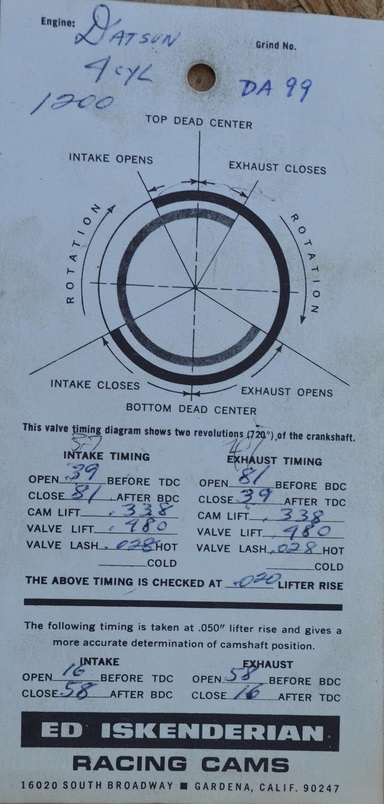 Engine: DATSUN
4 CYL
1200
Grind No.
DA 99
TOP DEAD CENTER
INTAKE OPENS
EXHAUST CLOSES
ROTATION
ROTATION
INTAKE CLOSES
EXHAUST OPENS
BOTTOM DEAD CENTER
This valve timing diagram shows two revolutions (720°) of the crankshaft.
INTAKE TIMING
OPEN 39 BEFORE TDC
CLOSE 81 AFTER BDC
CAM LIFT .338
VALVE LIFT .480
VALVE LASH .028 HOT
COLD
EXHAUST TIMING
OPEN 81 BEFORE BDC
CLOSE 39 AFTER TDC
CAM LIFT .338
VALVE LIFT .480
VALVE LASH .028 HOT
COLD
THE ABOVE TIMING IS CHECKED AT .020 LIFTER RISE
The following timing is taken at .050" lifter rise and gives a
more accurate determination of camshaft position.
INTAKE
OPEN 16 BEFORE TDC
CLOSE 58 AFTER BDC
EXHAUST
OPEN 58 BEFORE BDC
CLOSE 16 AFTER TDC
ED ISKENDERIAN
RACING CAMS
16020 SOUTH BROADWAY ■ GARDENA, CALIF. 90247